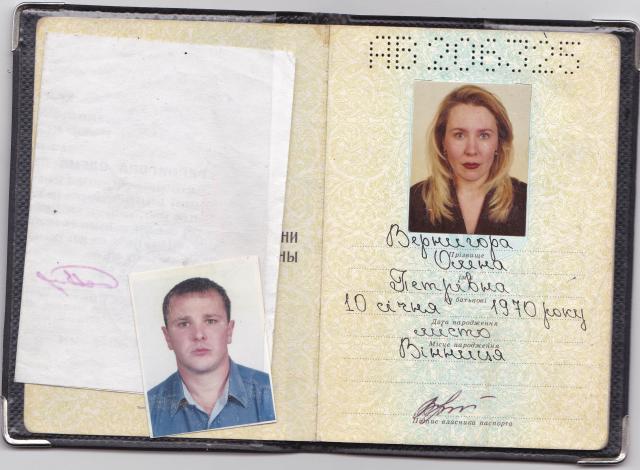 НИ
НЫ
АВ 206325
Вернигора
Прізвище
Олена
Петрівна
батькові
10 січня 1970 року
Дата народження
місто
Місце народження
Вінниця
Підпис власника паспорта